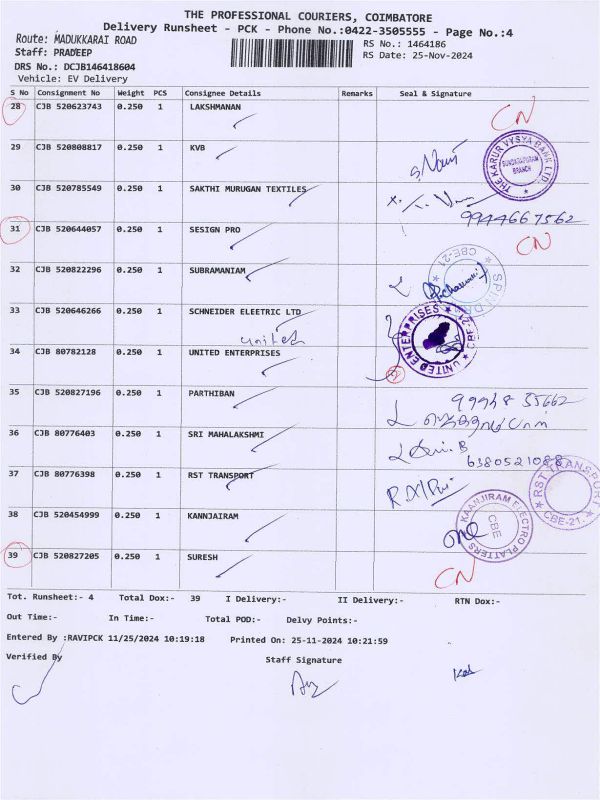 THE PROFESSIONAL COURIERS, COIMBATORE
Delivery Runsheet - PCK - Phone No.:0422-3505555 - Page No.:4
Route: MADUKKARAI ROAD
RS No.: 1464186
Staff: PRADEEP
RS Date: 25-Nov-2024
DRS No.: DCJB146418604
Vehicle: EV Delivery
S No Consignment No Weight PCS Consignee Details Remarks Seal & Signature
28 CJB 520623743 0.250 1 LAKSHMANAN CN
29 CJB 520808817 0.250 1 KVB
THE KARUR VYSYA BANK LTD.
SUNDARAPURAM
BRANCH
30 CJB 520785549 0.250 1 SAKTHI MURUGAN TEXTILES
9944667562
31 CJB 520644057 0.250 1 SESIGN PRO CN
32 CJB 520822296 0.250 1 SUBRAMANIAM
CBE-21
33 CJB 520646266 0.250 1 SCHNEIDER ELEETRIC LTD
united
34 CJB 80782128 0.250 1 UNITED ENTERPRISES
UNITED ENTERPRISES CBE-21
35 CJB 520827196 0.250 1 PARTHIBAN
36 CJB 80776403 0.250 1 SRI MAHALAKSHMI
37 CJB 80776398 0.250 1 RST TRANSPORT
RST TRANSPORT
CBE-21.
38 CJB 520454999 0.250 1 KANNJAIRAM
KAANJIRAM ELECTRO PLATTERS
CBE
39 CJB 520827205 0.250 1 SURESH CN
Tot. Runsheet:- 4 Total Dox:- 39 I Delivery:- II Delivery:- RTN Dox:-
Out Time:- In Time:- Total POD:- Delvy Points:-
Entered By :RAVIPCK 11/25/2024 10:19:18 Printed On: 25-11-2024 10:21:59
Verified By Staff Signature